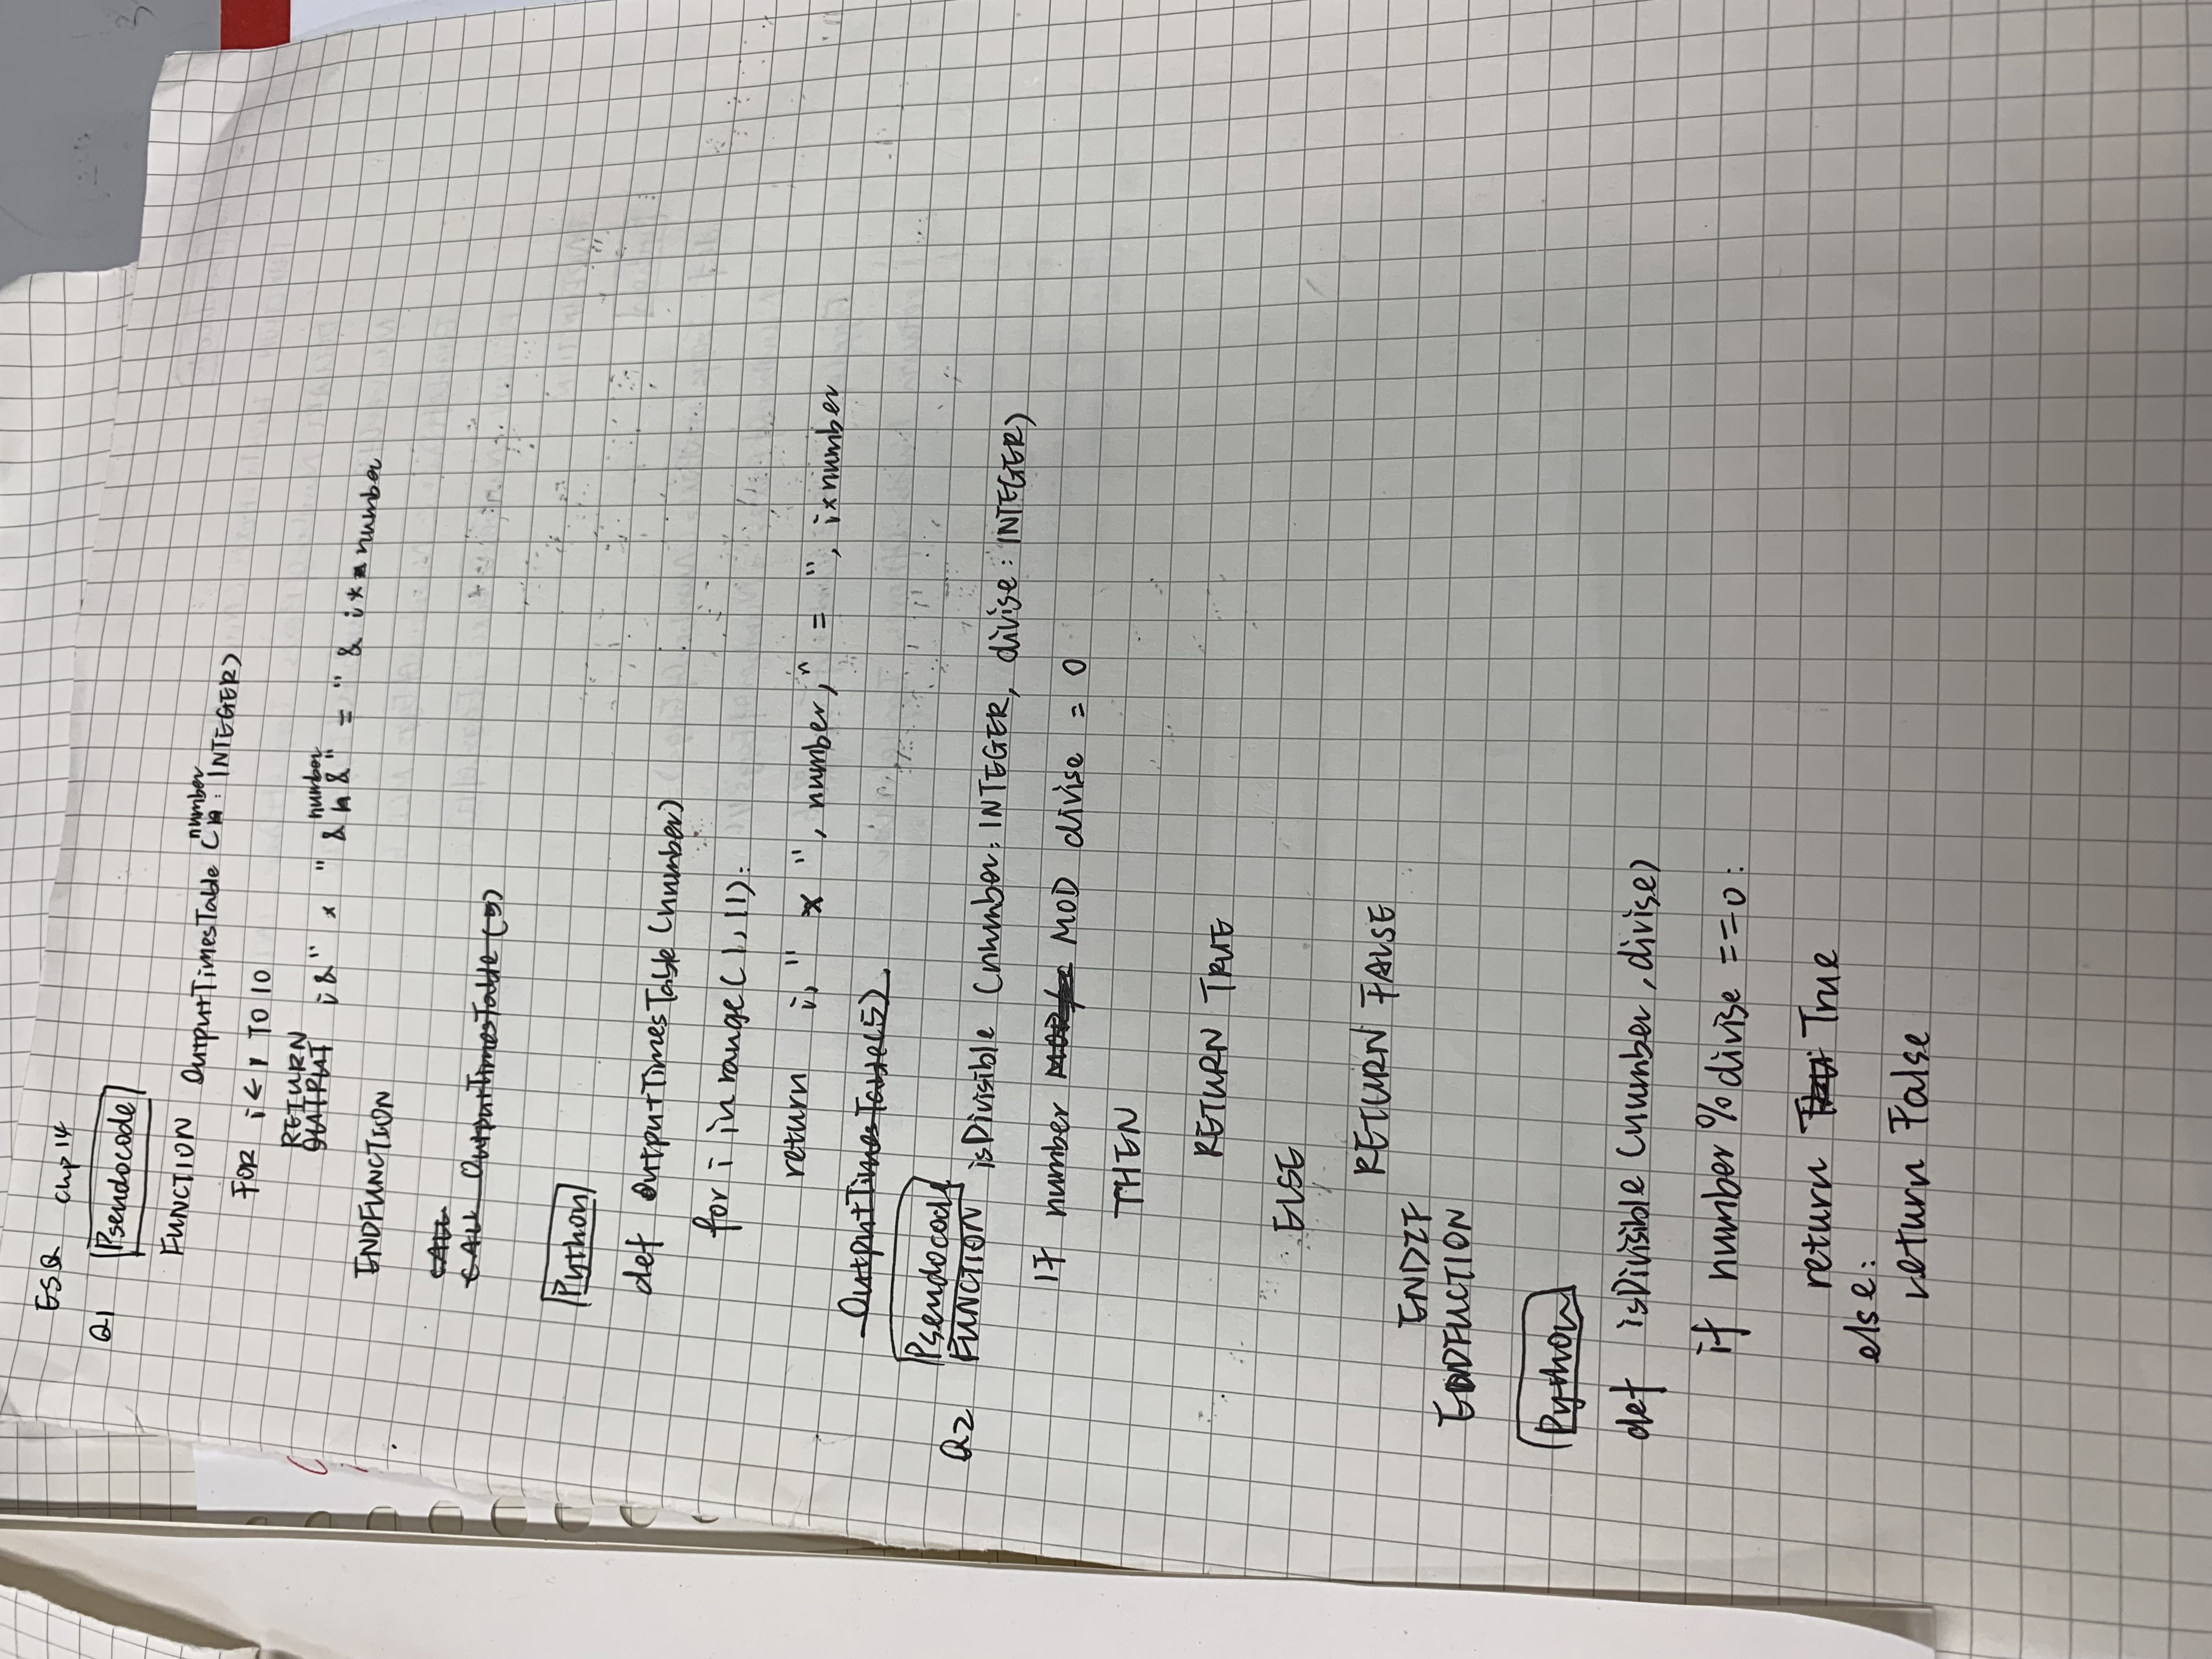 ESQ Chp 14
Q1 Pseudocode
FUNCTION OutputTimesTable (number : INTEGER)
FOR i ← 1 TO 10
RETURN
OUTPUT i & " × " & number & " = " & i * number
ENDFUNCTION
CALL
CALL OutputTimesTable (5)
Python
def OutputTimesTable (number)
for i in range (1, 11):
return i, " × ", number, " = ", i × number
OutputTimesTable (5)
Pseudocode
Q2 FUNCTION isDivisible (number : INTEGER, divise : INTEGER)
IF number MOD divise = 0
THEN
RETURN TRUE
ELSE
RETURN FALSE
ENDIF
ENDFUCTION
Python
def isDivisible (number, divise)
if number % divise == 0:
return True
else:
return False